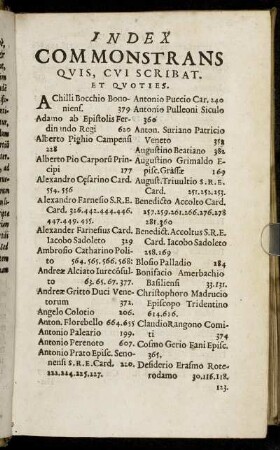 INDEX
COMMONSTRANS
QVIS, CVI SCRIBAT.
ET QVOTIES.
AChilli Bocchio Bono-
niens. 379
Adamo ab Epistolis Fer-
dinando Regi 620
Alberto Pighio Campensi
228
Alberto Pio Carporũ Prin-
cipi 177
Alexandro Cęsarino Card.
554. 556
Alexandro Farnesio S.R.E.
Card. 326.442.444.446.
447.449.455.
Alexander Farnesius Card.
Iacobo Sadoleto 319
Ambrosio Catharino Poli-
to 564.565.566.568.
Andreæ Alciato Iurecõsul-
to 63.65.67.377.
Andreæ Gritto Duci Vene-
torum 372.
Angelo Colotio 206.
Ant. Florebello 664.655
Antonio Paleario 199.
Antonio Perenoto 607.
Antonio Prato Episc. Seno-
nensi S.R.E.Card. 220.
222.224.225.227.
Antonio Puccio Car. 240
Antonio Pulleoni Siculo
360
Ant. Suriano Patricio
Veneto 358
Augustino Beatiano 382
Augustino Grimaldo E-
pisc. Grâsse 169
August. Triuultio S.R.E.
Card. 251.252.253.
Benedicto Accolto Card.
257.259.261.266.276.278
281.360
Benedict. Accoltus S.R.E.
Card. Iacobo Sadoleto
258.269
Blosio Palladio 284
Bonifacio Amerbachio
Basiliensi 33.131.
Christophoro Madrucio
Episcopo Tridentino
614.616.
Claudio Rangono Comi-
ti 374
Cosmo Gerio Fani Episc.
365.
Desiderio Erasmo Rote-
rodamo 30.116.118.
123.